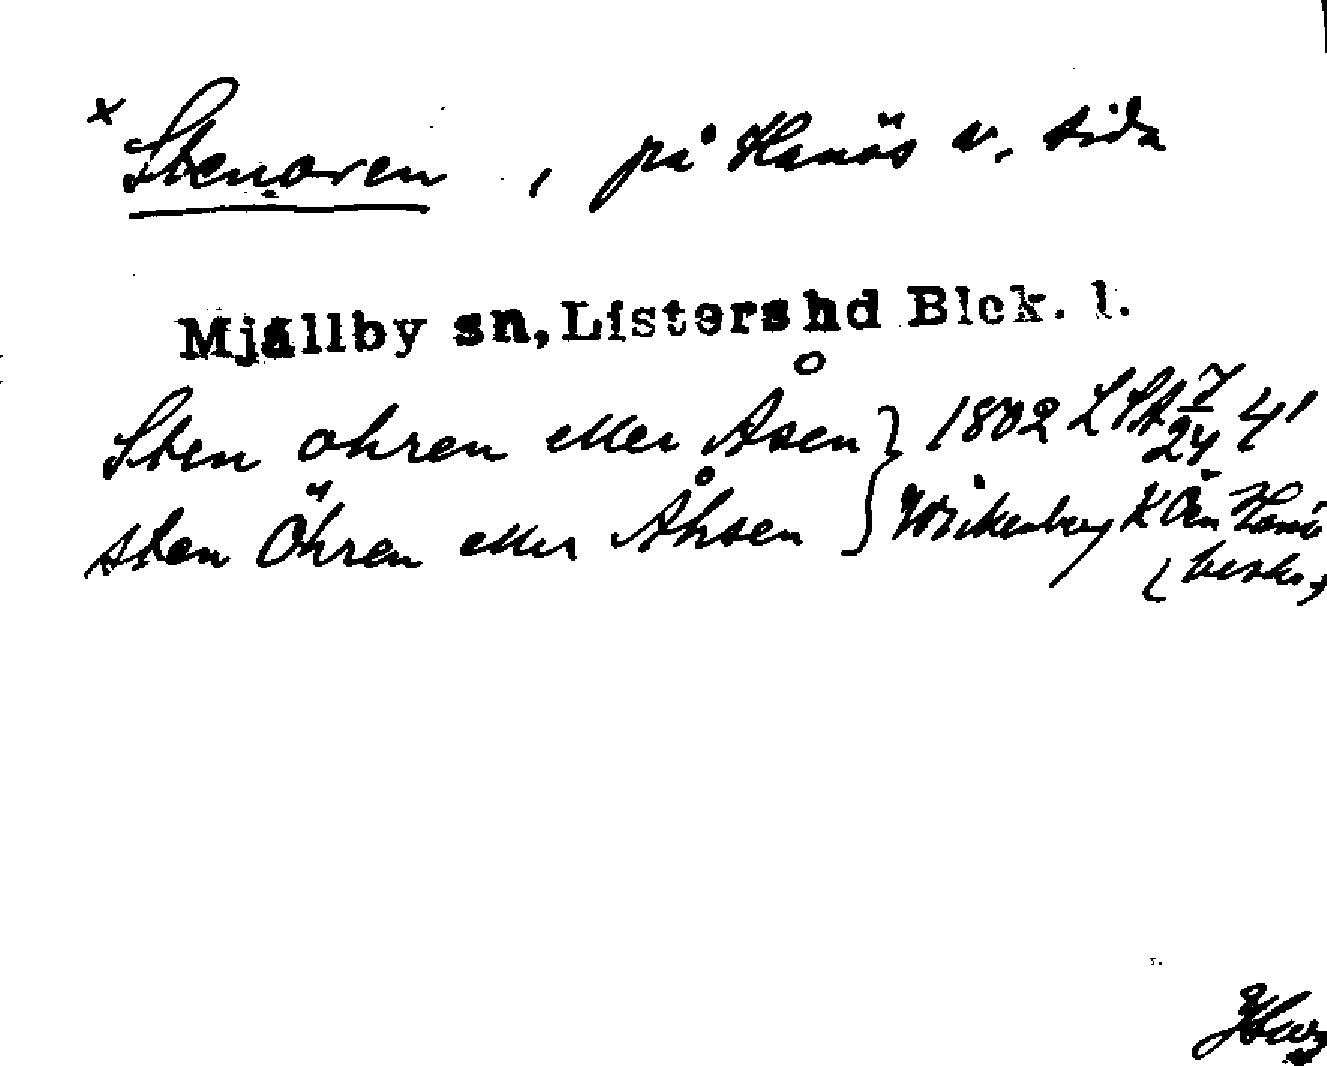 x Stenoren, på Hanös v. sida
Mjällby sn, Listers hd Blek. l.
Sten ohren eller Åsen } 1802 LSt 7/24 4'
sten Öhren eller Åhsen } Wickenberg K Ön Hanö
(beskr.,